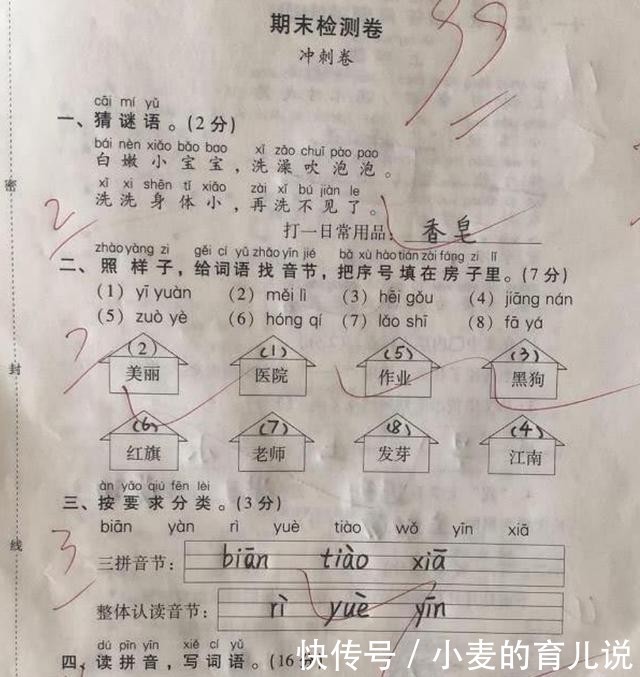 期末检测卷
99
冲刺卷
cāi mí yǔ
一、猜谜语。(2分)
bái nèn xiǎo bǎo bao xǐ zǎo chuī pào pao
白嫩小宝宝，洗澡吹泡泡。
xǐ xi shēn tǐ xiǎo zài xǐ bú jiàn le
洗洗身体小，再洗不见了。
打一日常用品：香皂
2
zhào yàng zi gěi cí yǔ zhǎo yīn jié bǎ xù hào tián zài fáng zi lǐ
二、照样子，给词语找音节，把序号填在房子里。(7分)
(1) yī yuàn (2) měi lì (3) hēi gǒu (4) jiāng nán
(5) zuò yè (6) hóng qí (7) lǎo shī (8) fā yá
7
(2) (1) (5) (3)
美丽 医院 作业 黑狗
(6) (7) (8) (4)
红旗 老师 发芽 江南
àn yāo qiú fēn lèi
三、按要求分类。(3分)
biān yàn rì yuè tiào wǒ yīn xiā
3
三拼音节： biān tiào xiā
整体认读音节： rì yuè yīn
dú pīn yīn xiě cí yǔ
四、读拼音，写词语。(16分)
密
封
线
快传号／小麦的育儿说